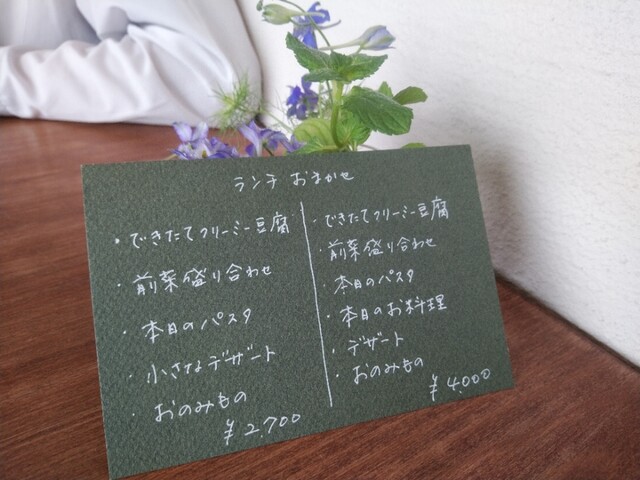 ランチ おまかせ
・できたてクリーミー豆腐
・前菜盛り合わせ
・本日のパスタ
・小さなデザート
・おのみもの
¥2,700
・できたてクリーミー豆腐
・前菜盛り合わせ
・本日のパスタ
・本日のお料理
・デザート
・おのみもの
¥4,000